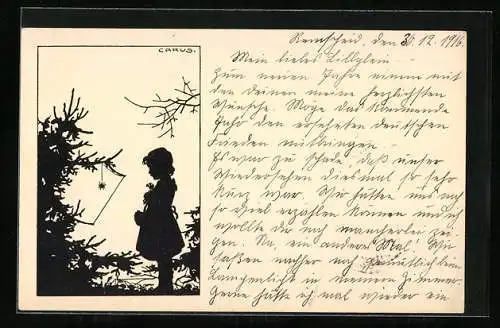 CARUS.
Remscheid, den 30.12.1916.
Mein liebes Lillylein –
Zum neuen Jahre nimm mit
den Deinen meine herzlichsten
Wünsche. Möge das kommende
Jahr den ersehnten deutschen
Frieden mitbringen. –
Es war zu schade, daß unser
Wiedersehen diesmal so sehr
kurz war. Wir hätten uns noch
so viel erzählen können und ich
wollte dir noch mancherlei zei-
gen. Na, ein anderes Mal! Wir
saßen nachher noch gemütlich beim
Lampenlicht in meinem Zimmer.
Gerne hätte ich mal wieder ein